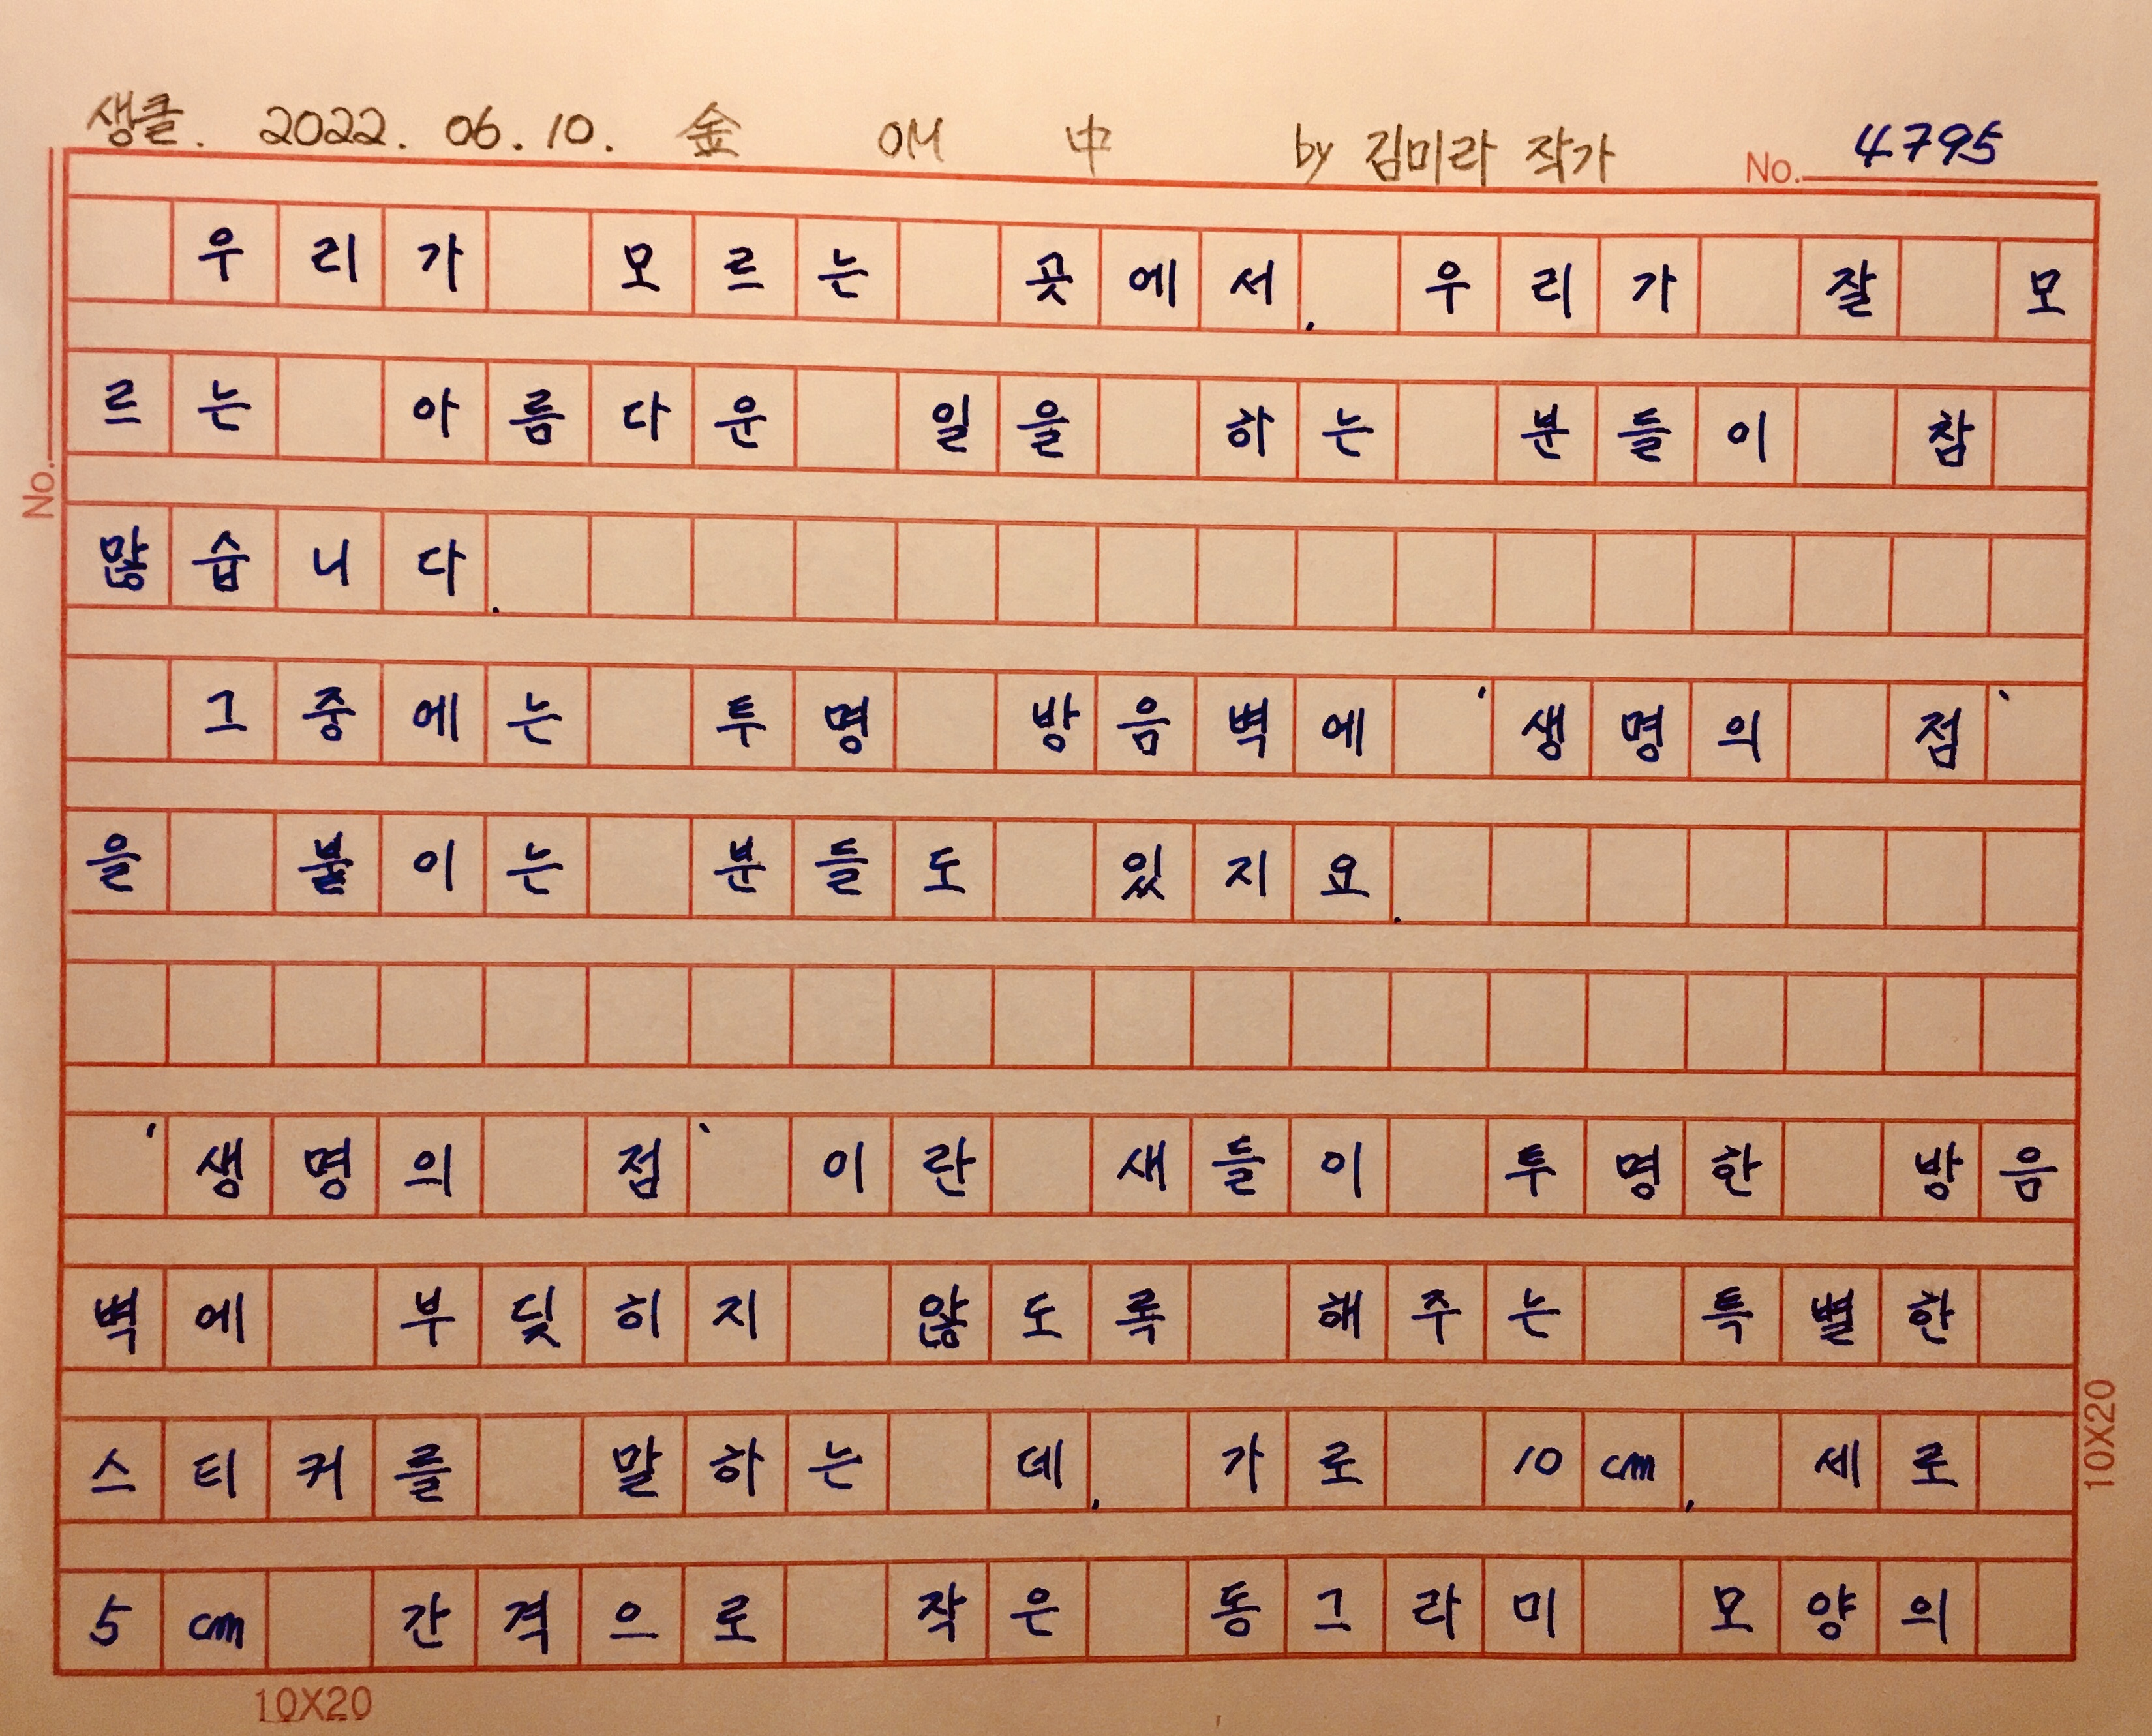 생클. 2022. 06. 10. 金 OM 中 by 김미라 작가 No. 4795
우리가 모르는 곳에서, 우리가 잘 모
르는 아름다운 일을 하는 분들이 참
많습니다.
그중에는 투명 방음벽에 '생명의 점'
을 붙이는 분들도 있지요.
'생명의 점'이란 새들이 투명한 방음
벽에 부딪히지 않도록 해주는 특별한
스티커를 말하는 데, 가로 10cm, 세로
5cm 간격으로 작은 동그라미 모양의
No.
10X20
10X20